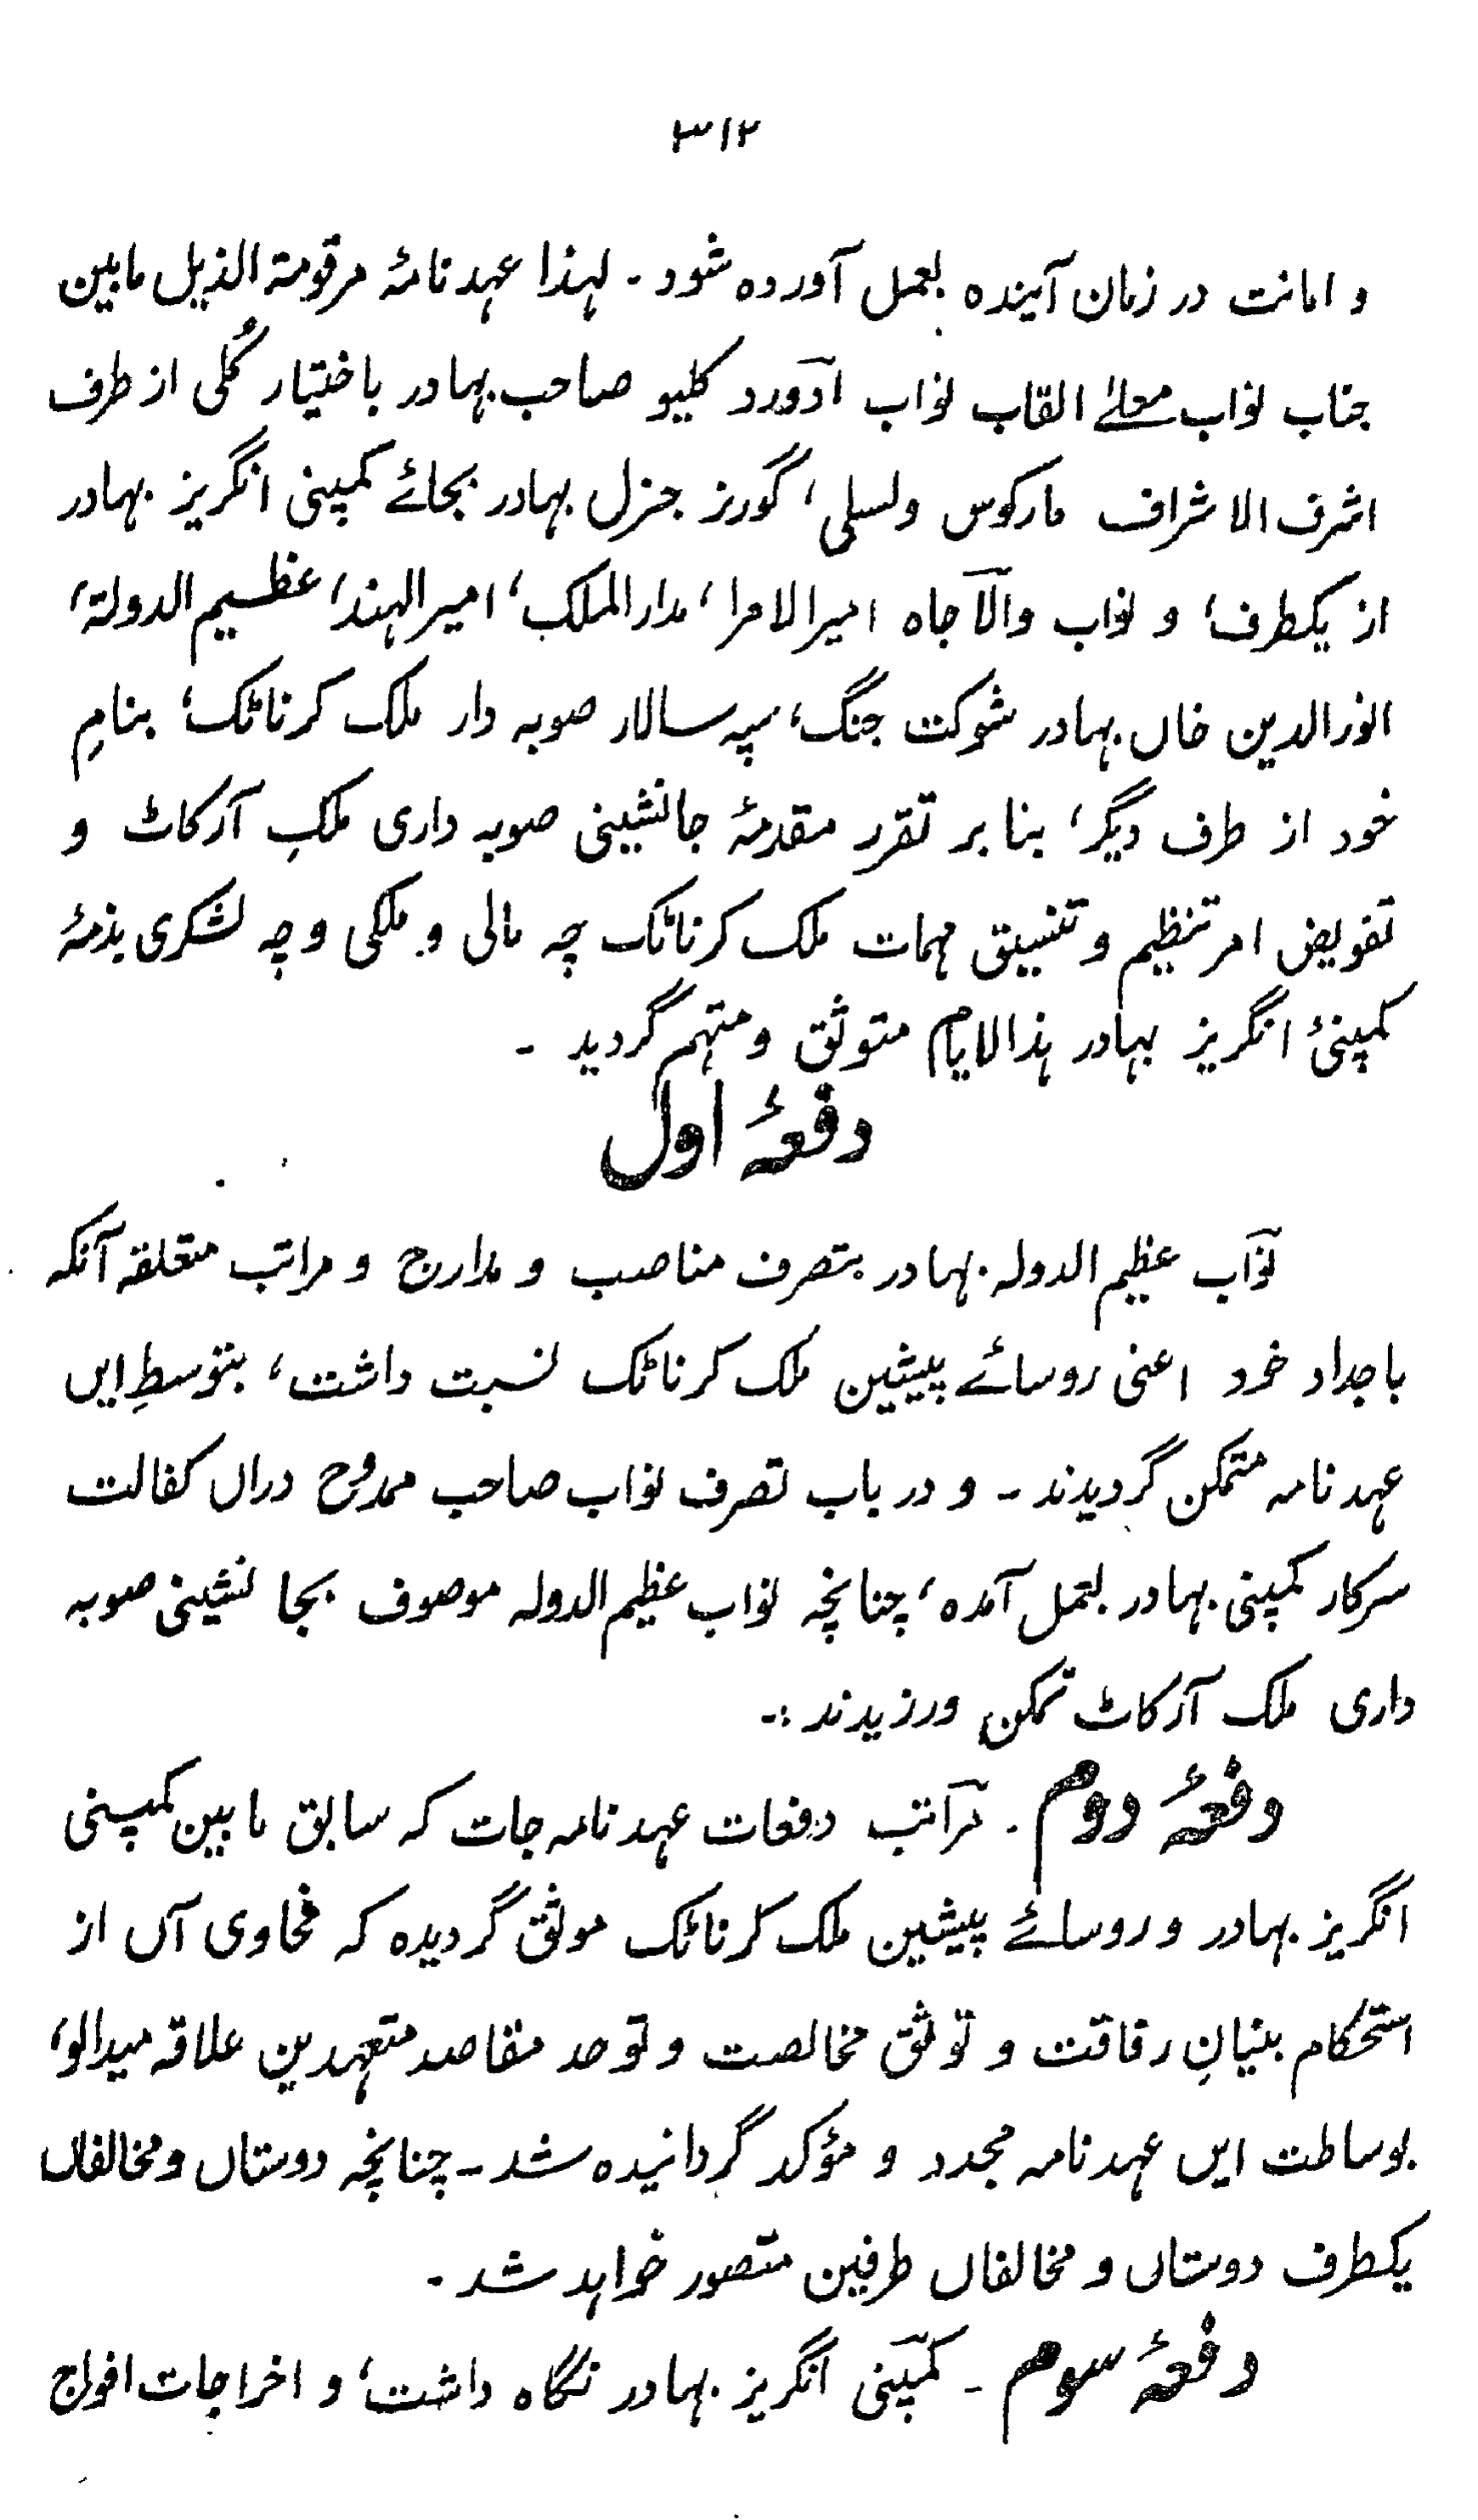 ۳۱۲
و امانت در زمان آینده بعمل آورده شود ۔ لہذا عہد نامۂ مرقومۃ الذیل مابین
جناب نواب معلےٰ القاب نواب آدورد کلیو صاحب بہادر باختیار کُلی از طرف
اشرف الاشراف مارکوس ولسلی، گورنر جنرل بہادر بجائے کمپنی انگریز بہادر
از یکطرف، و نواب والآجاہ امیرالامرا، مدارالملک، امیرالہند، عظیم الدولۃ،
انورالدین خاں بہادر شوکت جنگ، سپہ سالار صوبہ دار ملک کرناٹک، بنامِ
خود از طرف دیگر، بنا بر تقرر مقدمۂ جانشینی صوبہ داری ملکِ آرکاٹ و
تفویض امر تنظیم و تنسیق مہمات ملک کرناٹک چہ مالی و ملکی و چہ لشکری بذمۂ
کمپنیٔ انگریز بہادر ہذالایام متوثق و متہم گردید ۔
دفعۂ اول
نوآب عظیم الدولہ بہادر بتصرف مناصب و مدارج و مراتب متعلقہ آنکہ
باجداد خود اعنی روسائے پیشین ملک کرناٹک نسبت داشت، بتوسطِ ایں
عہد نامہ متمکن گردیدند ۔ و در باب تصرف نواب صاحب ممدوح دراں کفالت
سرکار کمپنی بہادر بعمل آمدہ، چنانچہ نواب عظیم الدولہ موصوف بجا نشینی صوبہ
داری ملک آرکاٹ تمکن ورزیدند :۔
دفعۂ دوم ۔ مرآتب دفعات عہد نامہ جات کہ سابق ما بین کمپنی
انگریز بہادر و روسائے پیشین ملک کرناٹک موثق گردیدہ کہ فحاوی آں از
استحکام بنیانِ رفاقت و توثق مخالصت و توحد مقاصد متعہدین علاقہ میدالو،
بوساطت ایں عہد نامہ مجدد و مؤکد گردانیدہ شد ۔ چنانچہ دوستاں و مخالفاں
یکطرف دوستاں و مخالفاں طرفین متصور خواہد شد ۔
دفعۂ سوم ۔ کمپنی انگریز بہادر نگاہ داشت، و اخراجات افواج